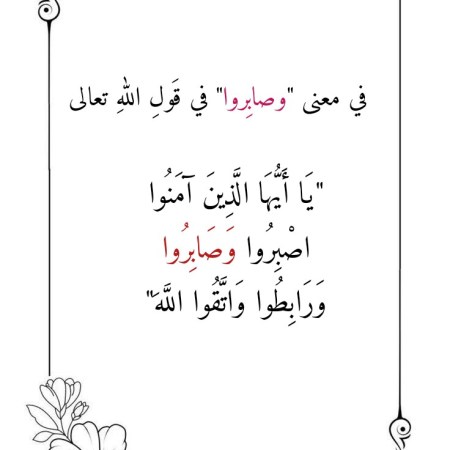 في معنى "وصابِروا" في قَولِ اللهِ تعالى
"يَا أَيُّهَا الَّذِينَ آمَنُوا
اصْبِرُوا وَصَابِرُوا
وَرَابِطُوا وَاتَّقُوا اللَّهَ"